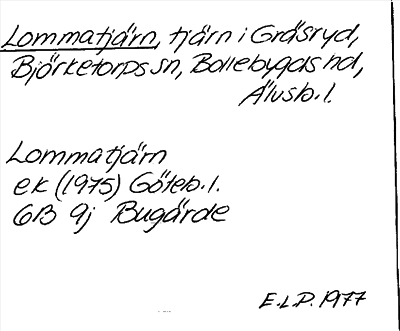 Lommatjärn, tjärn i Gräsryd,
Björketorps sn, Bollebygds hd,
Älvsb. l.
Lommatjärn
ek (1975) Göteb. l.
6B 9j Bugärde
E.L.P. 1977